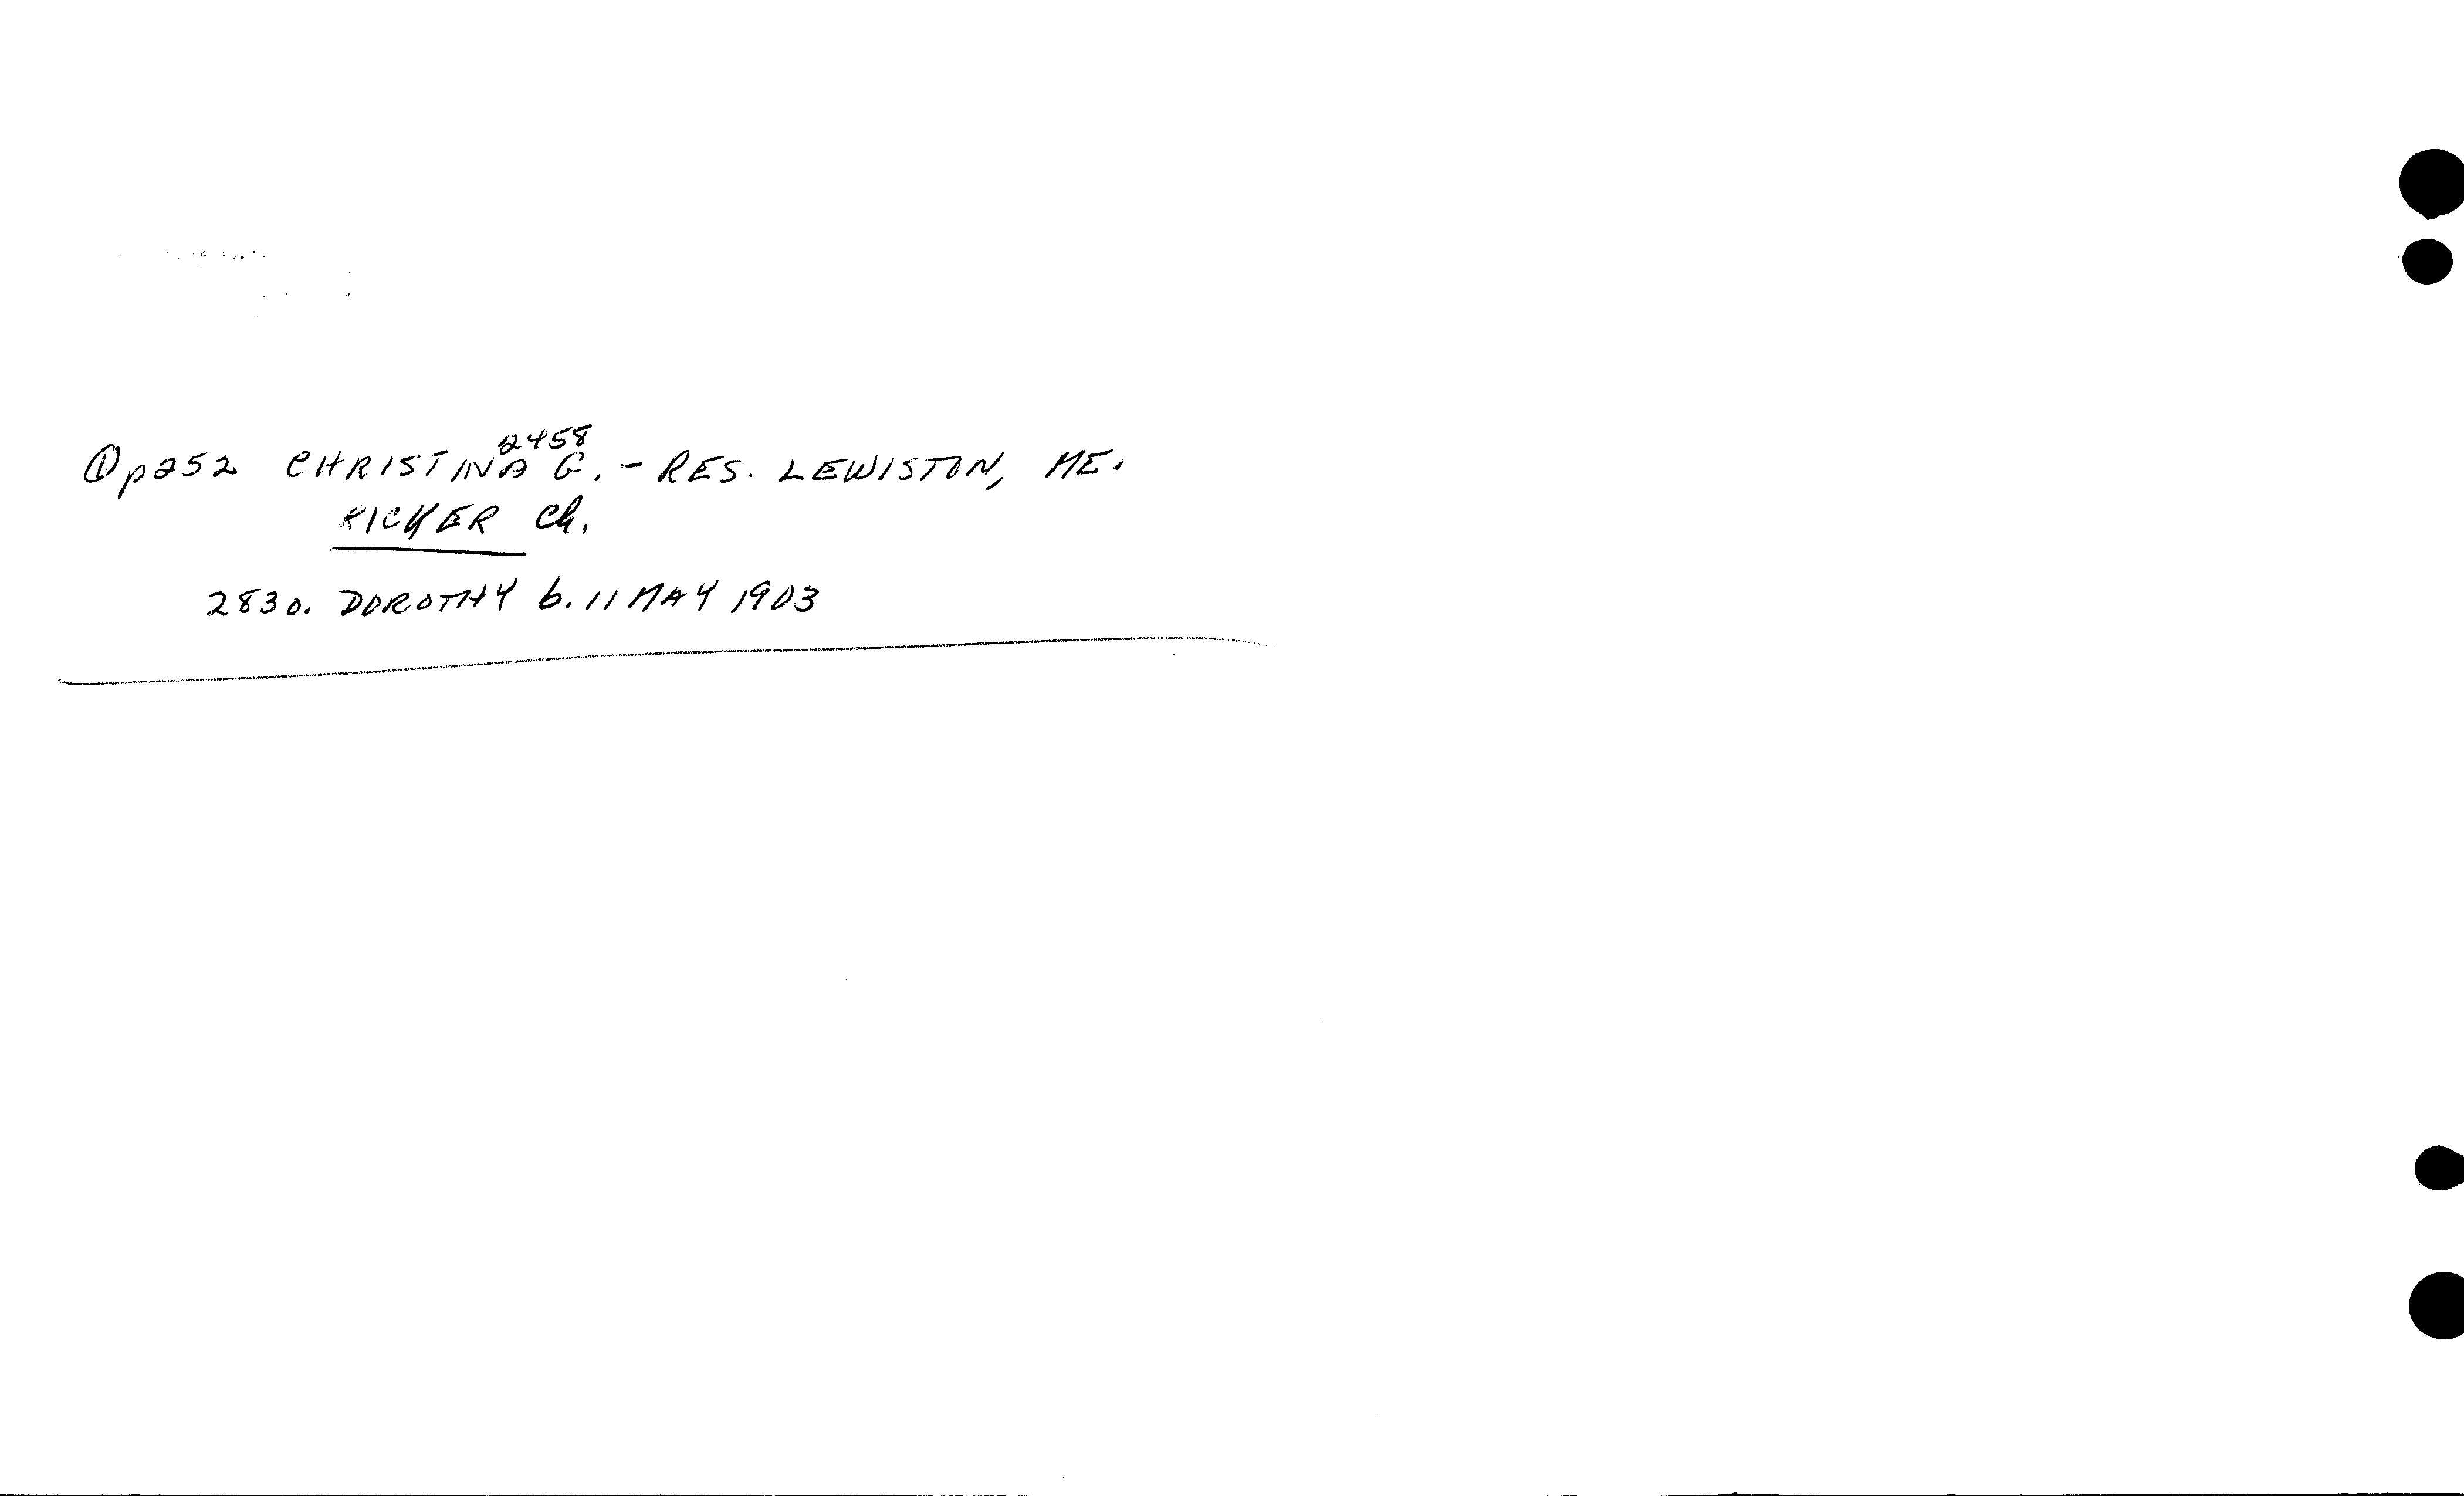 ① p252 CHRISTINA 2458 G. - RES. LEWISTON, ME.
RICKER Ch.
2830. DOROTHY b. 11 MAY 1903